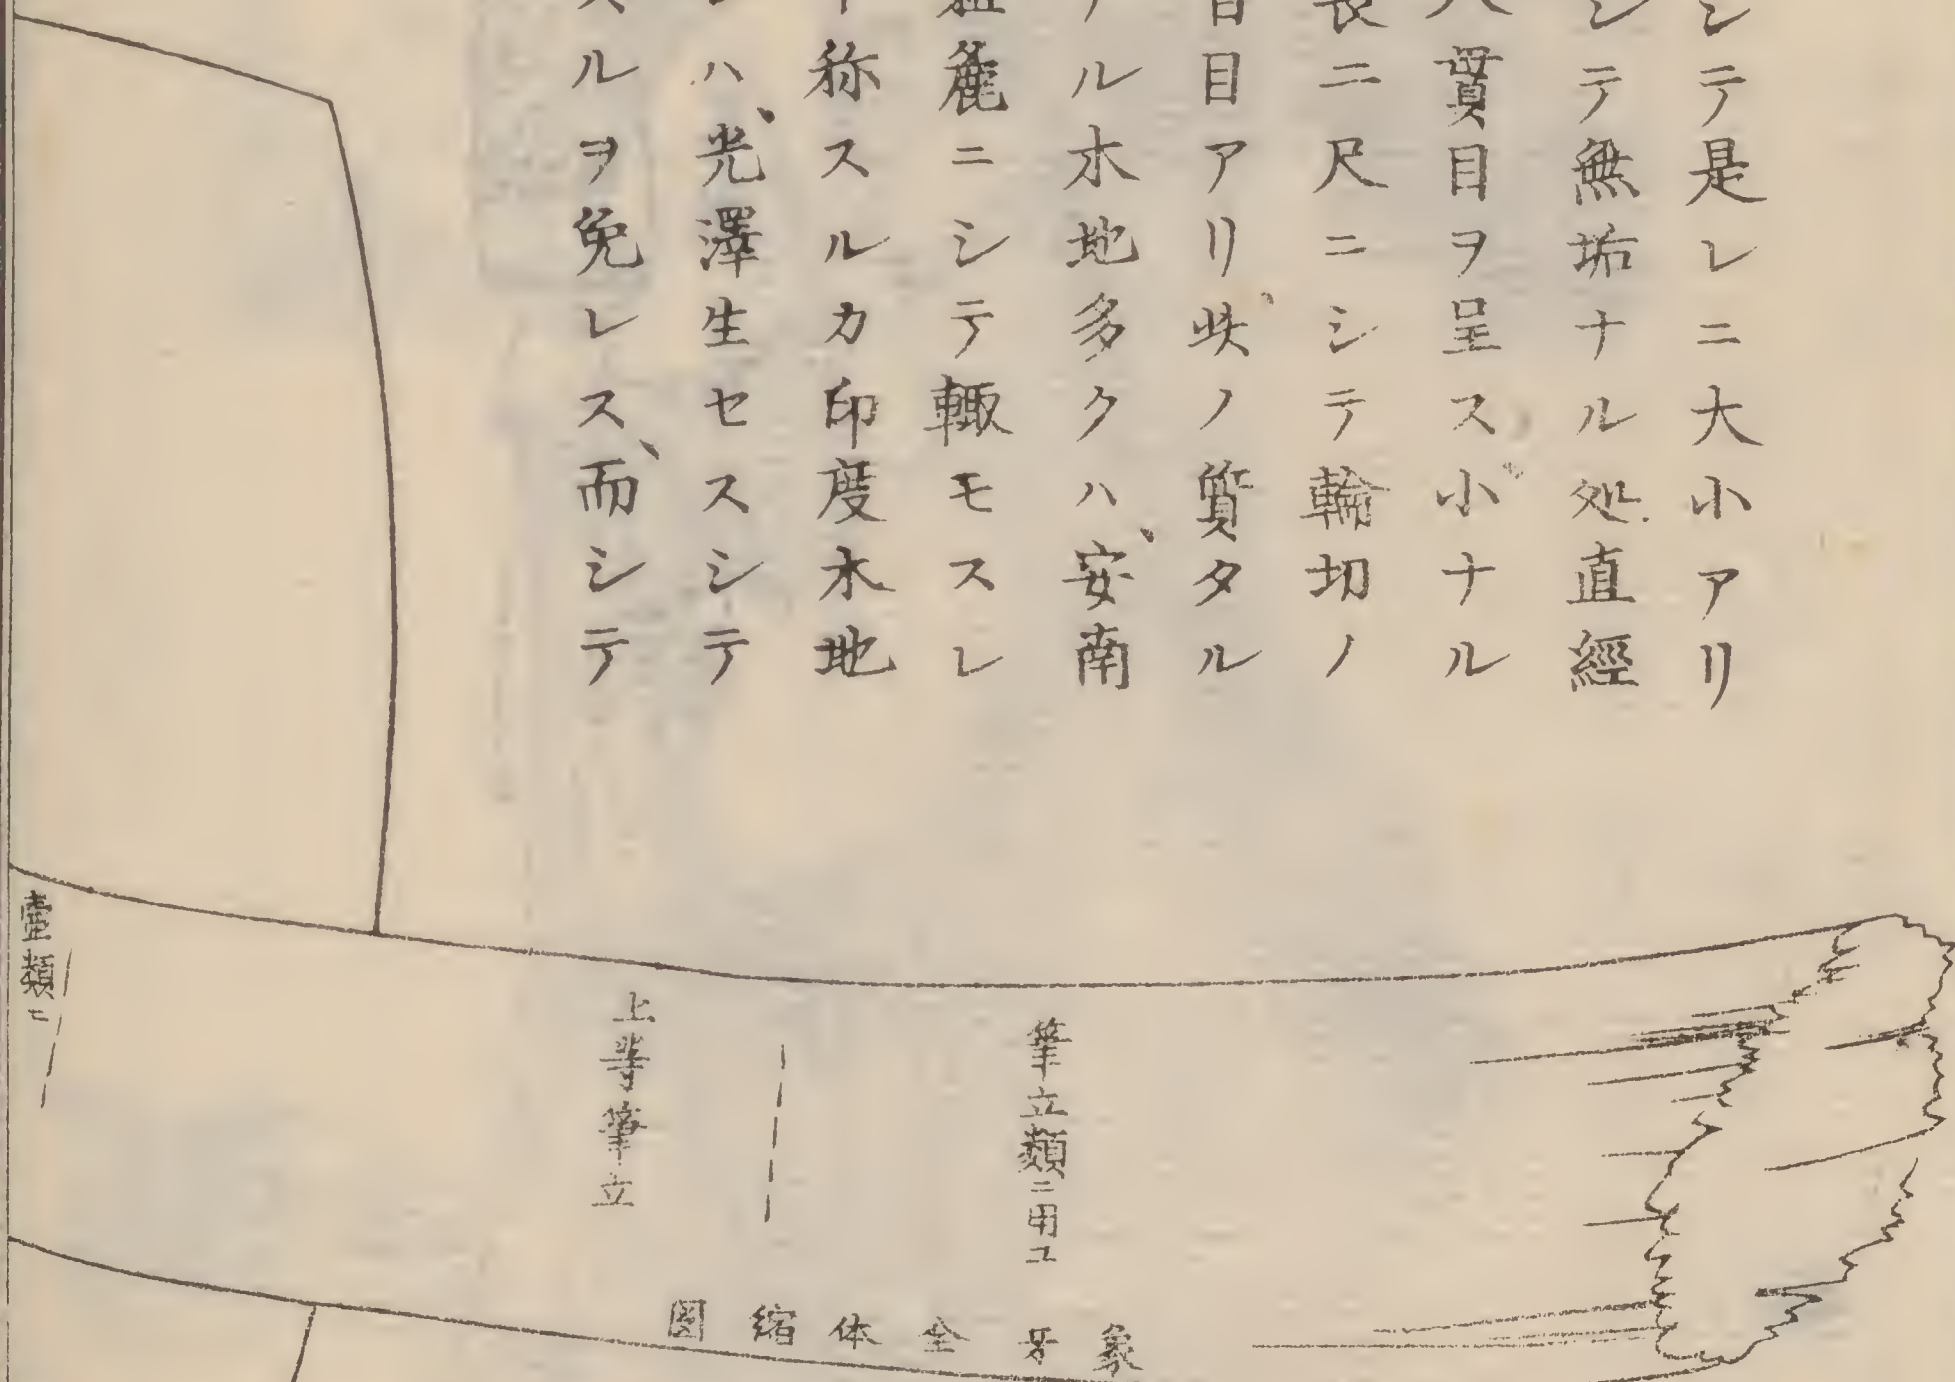 シテ是レニ大小アリ
シテ無垢ナル処直經
貫目ヲ呈ス小ナル
長ニ尺ニシテ輪切ノ
目アリ此ノ質タル
アル木地多クハ、安南
粗麁ニシテ輙モスレ
称スルカ印度木地
ハ、光澤生セスシテ
スルヲ免レス、而シテ
筆立類ニ用ユ
上等筆立
壷類ニ
象牙全体縮圖